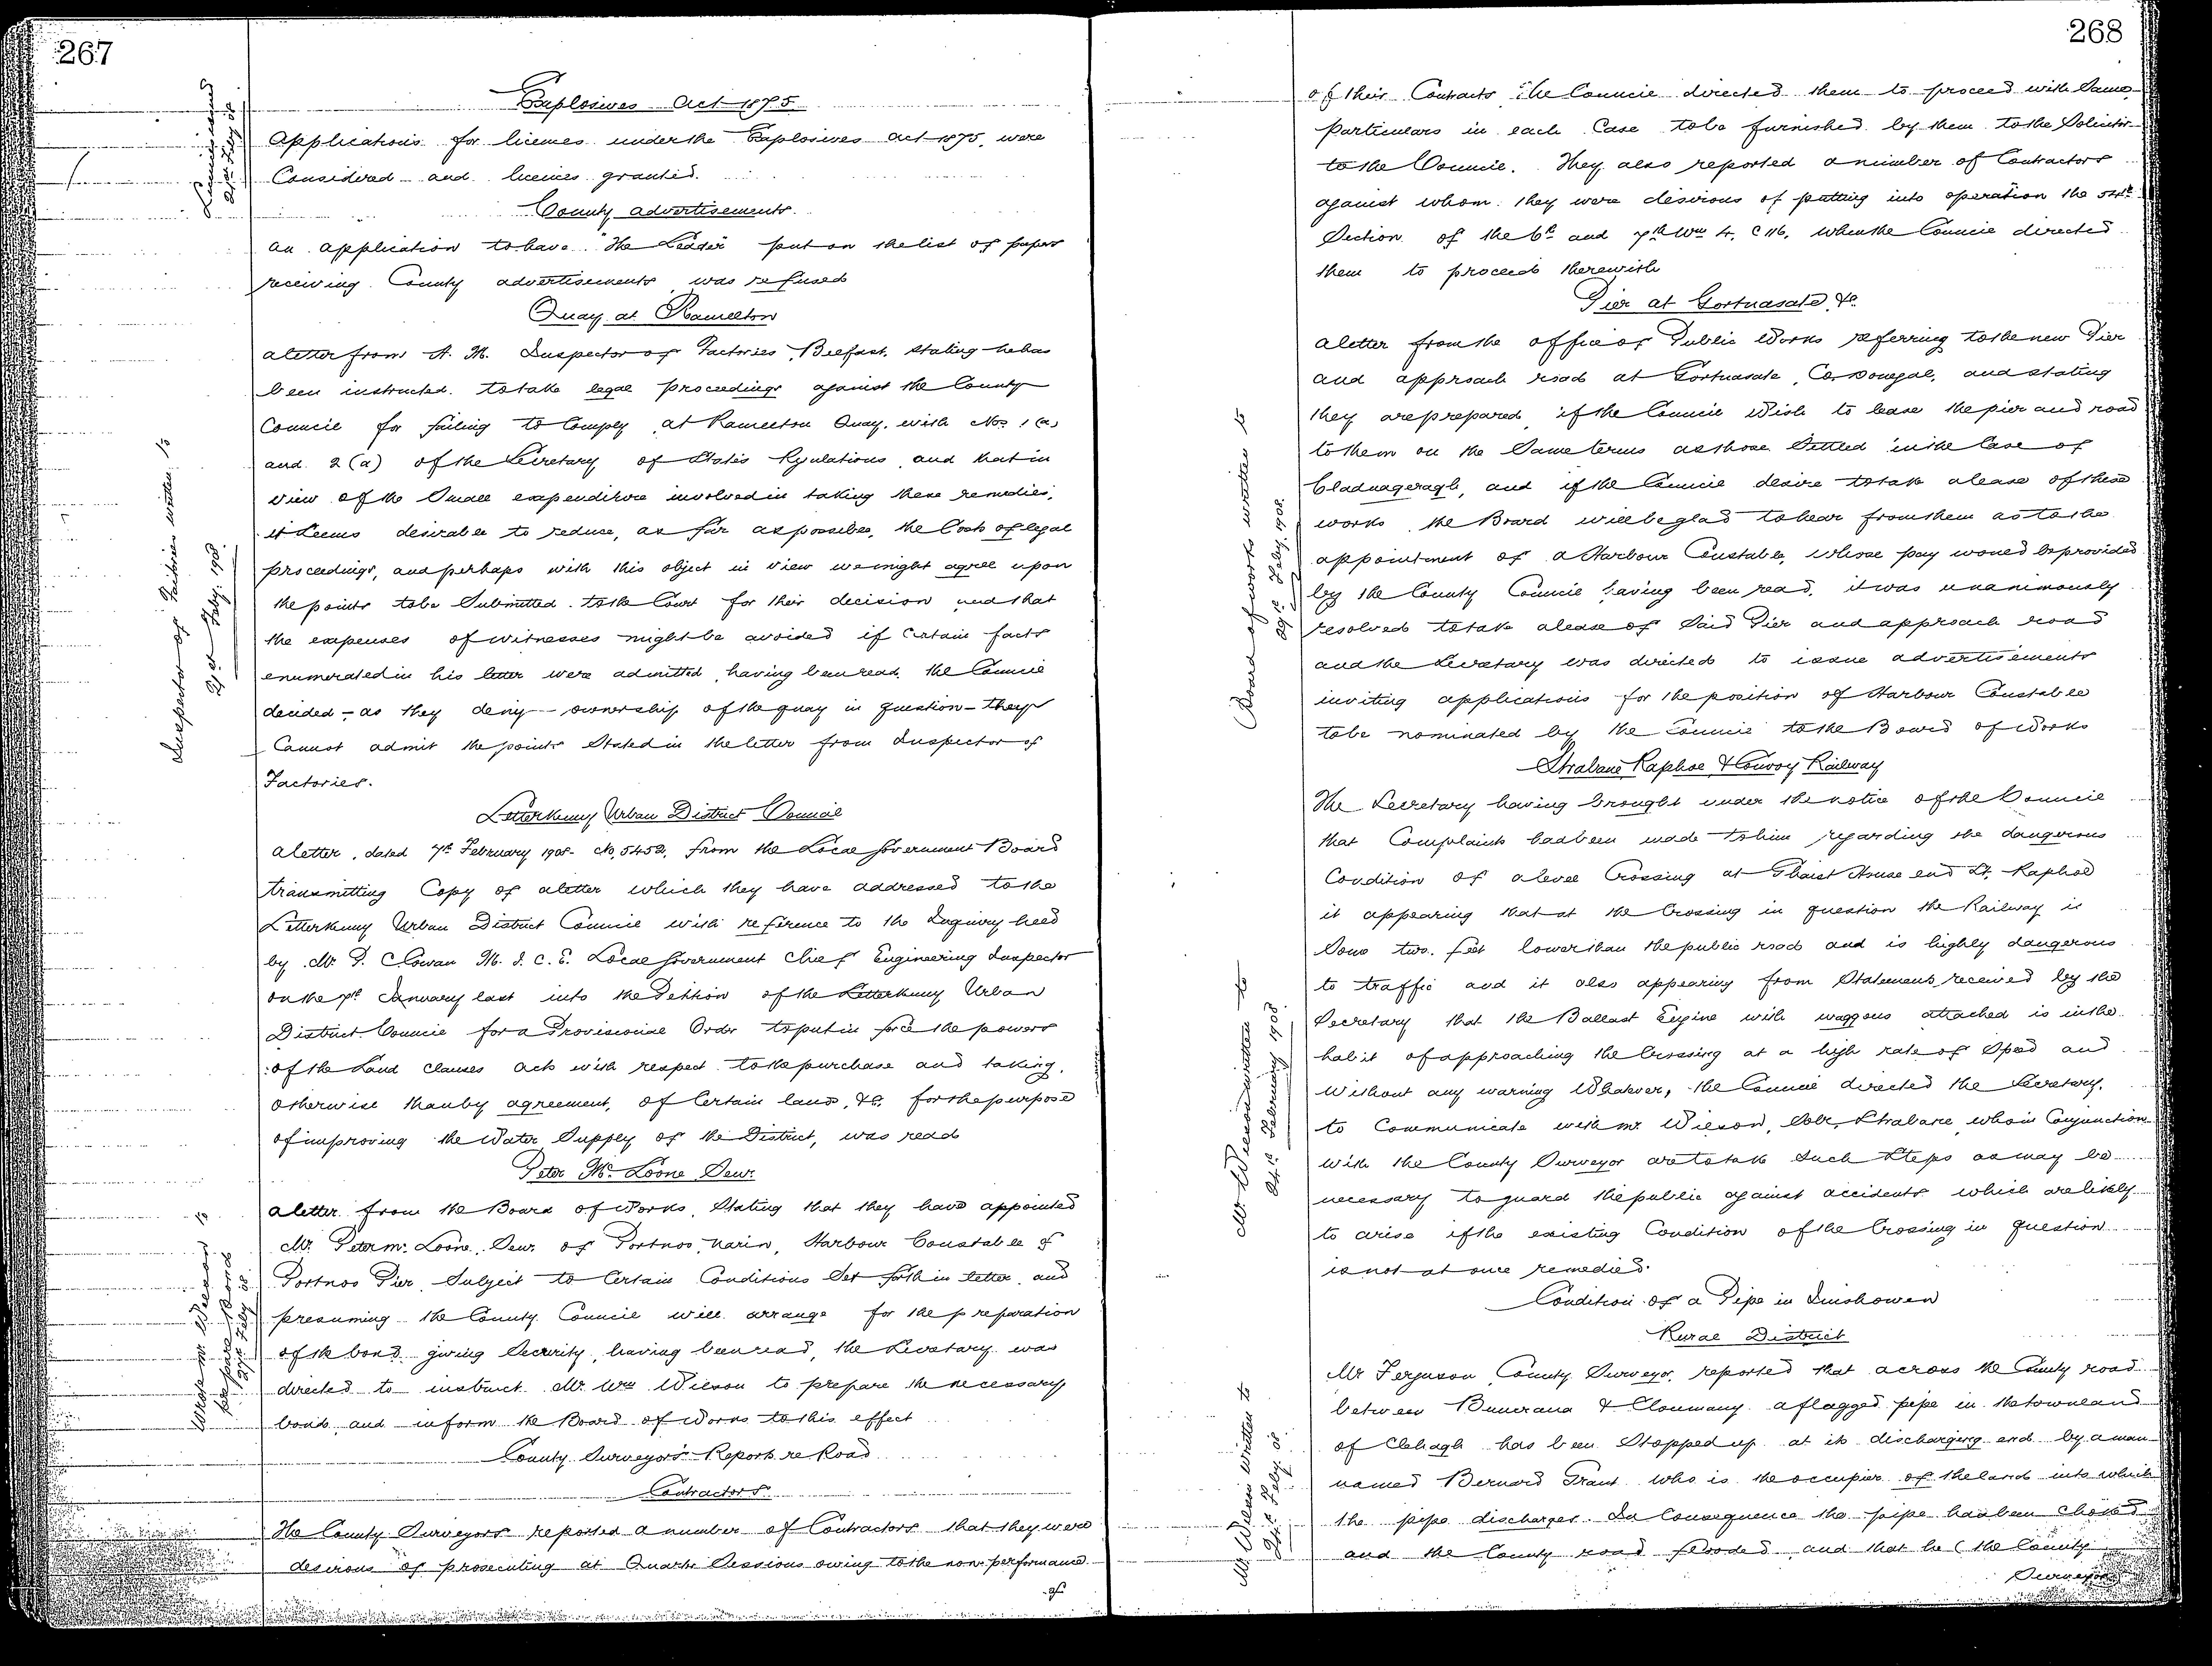 267
Explosives Act 1875
Applications for licenses under the Explosives Act 1875, were
Considered and licenses granted.
County Advertisements.
An application to have "The Leader" put on the list of papers
receiving County advertisements was refused
Quay at Ramelton
A letter from H. M. Inspector of Factories, Belfast, stating he has
been instructed to take legal proceedings against the County
Council for failing to Comply at Ramelton Quay, with Nos. 1 (a)
and 2 (a) of the Secretary of State's Regulations, and that in
view of the Small expenditure involved in taking these remedies,
it Seems desirable to reduce, as far as possible, the Costs of legal
proceedings, and perhaps with this object in view we might agree upon
the points to be Submitted to the Court for their decision and that
the expenses of witnesses might be avoided if Certain facts
enumerated in his letter were admitted, having been read, the Council
decided - as they deny - ownership of the quay in question - they
Cannot admit the points Stated in the letter from Inspector of
Factories.
Inspector of Factories written to
21st Feby. 1908.
Letterkenny Urban District Council
A letter, dated 7th February 1908 - No, 5452, from the Local Government Board
transmitting Copy of a letter which they have addressed to the
Letterkenny Urban District Council with reference to the Inquiry held
by Mr P. C. Cowan M. I. C. E. Local Government Chief Engineering Inspector
on the 7th January last into the Petition of the Letterkenny Urban
District Council for a Provisional Order to put in force the powers
of the Land Clauses Acts with respect to the purchase and taking,
otherwise than by agreement, of Certain lands, &c. for the purpose
of improving the Water Supply of the District, was read
Peter Mc Loone Senr.
A letter from the Board of Works, Stating that they have appointed
Mr. Peter Mc Loone, Senr. of Portnoo, Narin, Harbour Constable of
Portnoo Pier, Subject to Certain Conditions Set forth in letter, and
presuming the County Council will arrange for the preparation
of the bond giving Security, having been read, the Secretary was
directed to instruct Mr Wm Wilson to prepare the necessary
bond, and inform the Board of Works to this effect
Wrote Mr Wilson to
prepare bond
County Surveyors' Reports re Road
Contractors.
The County Surveyors reported a number of Contractors that they were
desirous of prosecuting at Quarter Sessions owing to the non performance
of
268
of their Contracts. The Council directed them to proceed with Same,
particulars in each Case to be furnished by them to the Solicitor
to the Council. They also reported a number of Contractors
against whom they were desirous of putting into operation the 54th
Section of the 6th and 7th Wm 4. C 116, when the Council directed
them to proceed therewith
Pier at Gortnasate, &c.
A letter from the office of Public Works referring to the new Pier
and approach road at Gortnasate, Co. Donegal, and stating
they are prepared, if the Council Wish to lease the pier and road
to them on the Same terms as those Settled in the Case of
Cladnageragh, and if the Council desire to take a lease of these
works the Board will be glad to hear from them as to the
appointment of a Harbour Constable, whose pay would be provided
by the County Council having been read, it was unanimously
resolved to take a lease of Said Pier and approach road
and the Secretary was directed to issue advertisements
inviting applications for the position of Harbour Constable
to be nominated by the Council to the Board of Works
Board of works written to
29th Feby. 1908.
Strabane Raphoe & Convoy Railway
The Secretary having brought under the notice of the Council
that Complaints had been made to him regarding the dangerous
Condition of a level Crossing at House end Raphoe
it appearing that at the Crossing in question the Railway is
Some two feet lower than the public road and is highly dangerous
to traffic and it also appearing from Statements received by the
Secretary that the Ballast Engine with waggons attached is in the
habit of approaching the Crossing at a high rate of Speed and
Without any warning Whatever, the Council directed the Secretary,
to Communicate with Mr Wilson, Solr, Strabane, who in Conjunction
with the County Surveyor are to take Such Steps as may be
necessary to guard the public against accidents which are likely
to arise if the existing Condition of the Crossing in question
is not at once remedied.
Mr Wilson written to
24th February 1908
Condition of a Pipe in Inishowen
Rural District
Mr Ferguson, County Surveyor, reported that across the County road
between Buncrana & Clonmany a flagged pipe in the townland
of Clehagh has been Stopped up at its discharging end by a man
named Bernard Grant who is the occupier of the land into which
the pipe discharges. In Consequence the pipe has been Choked
and the County road flooded, and that he (the County
Surveyor
Mr Wilson written to
24th Feby. 08.